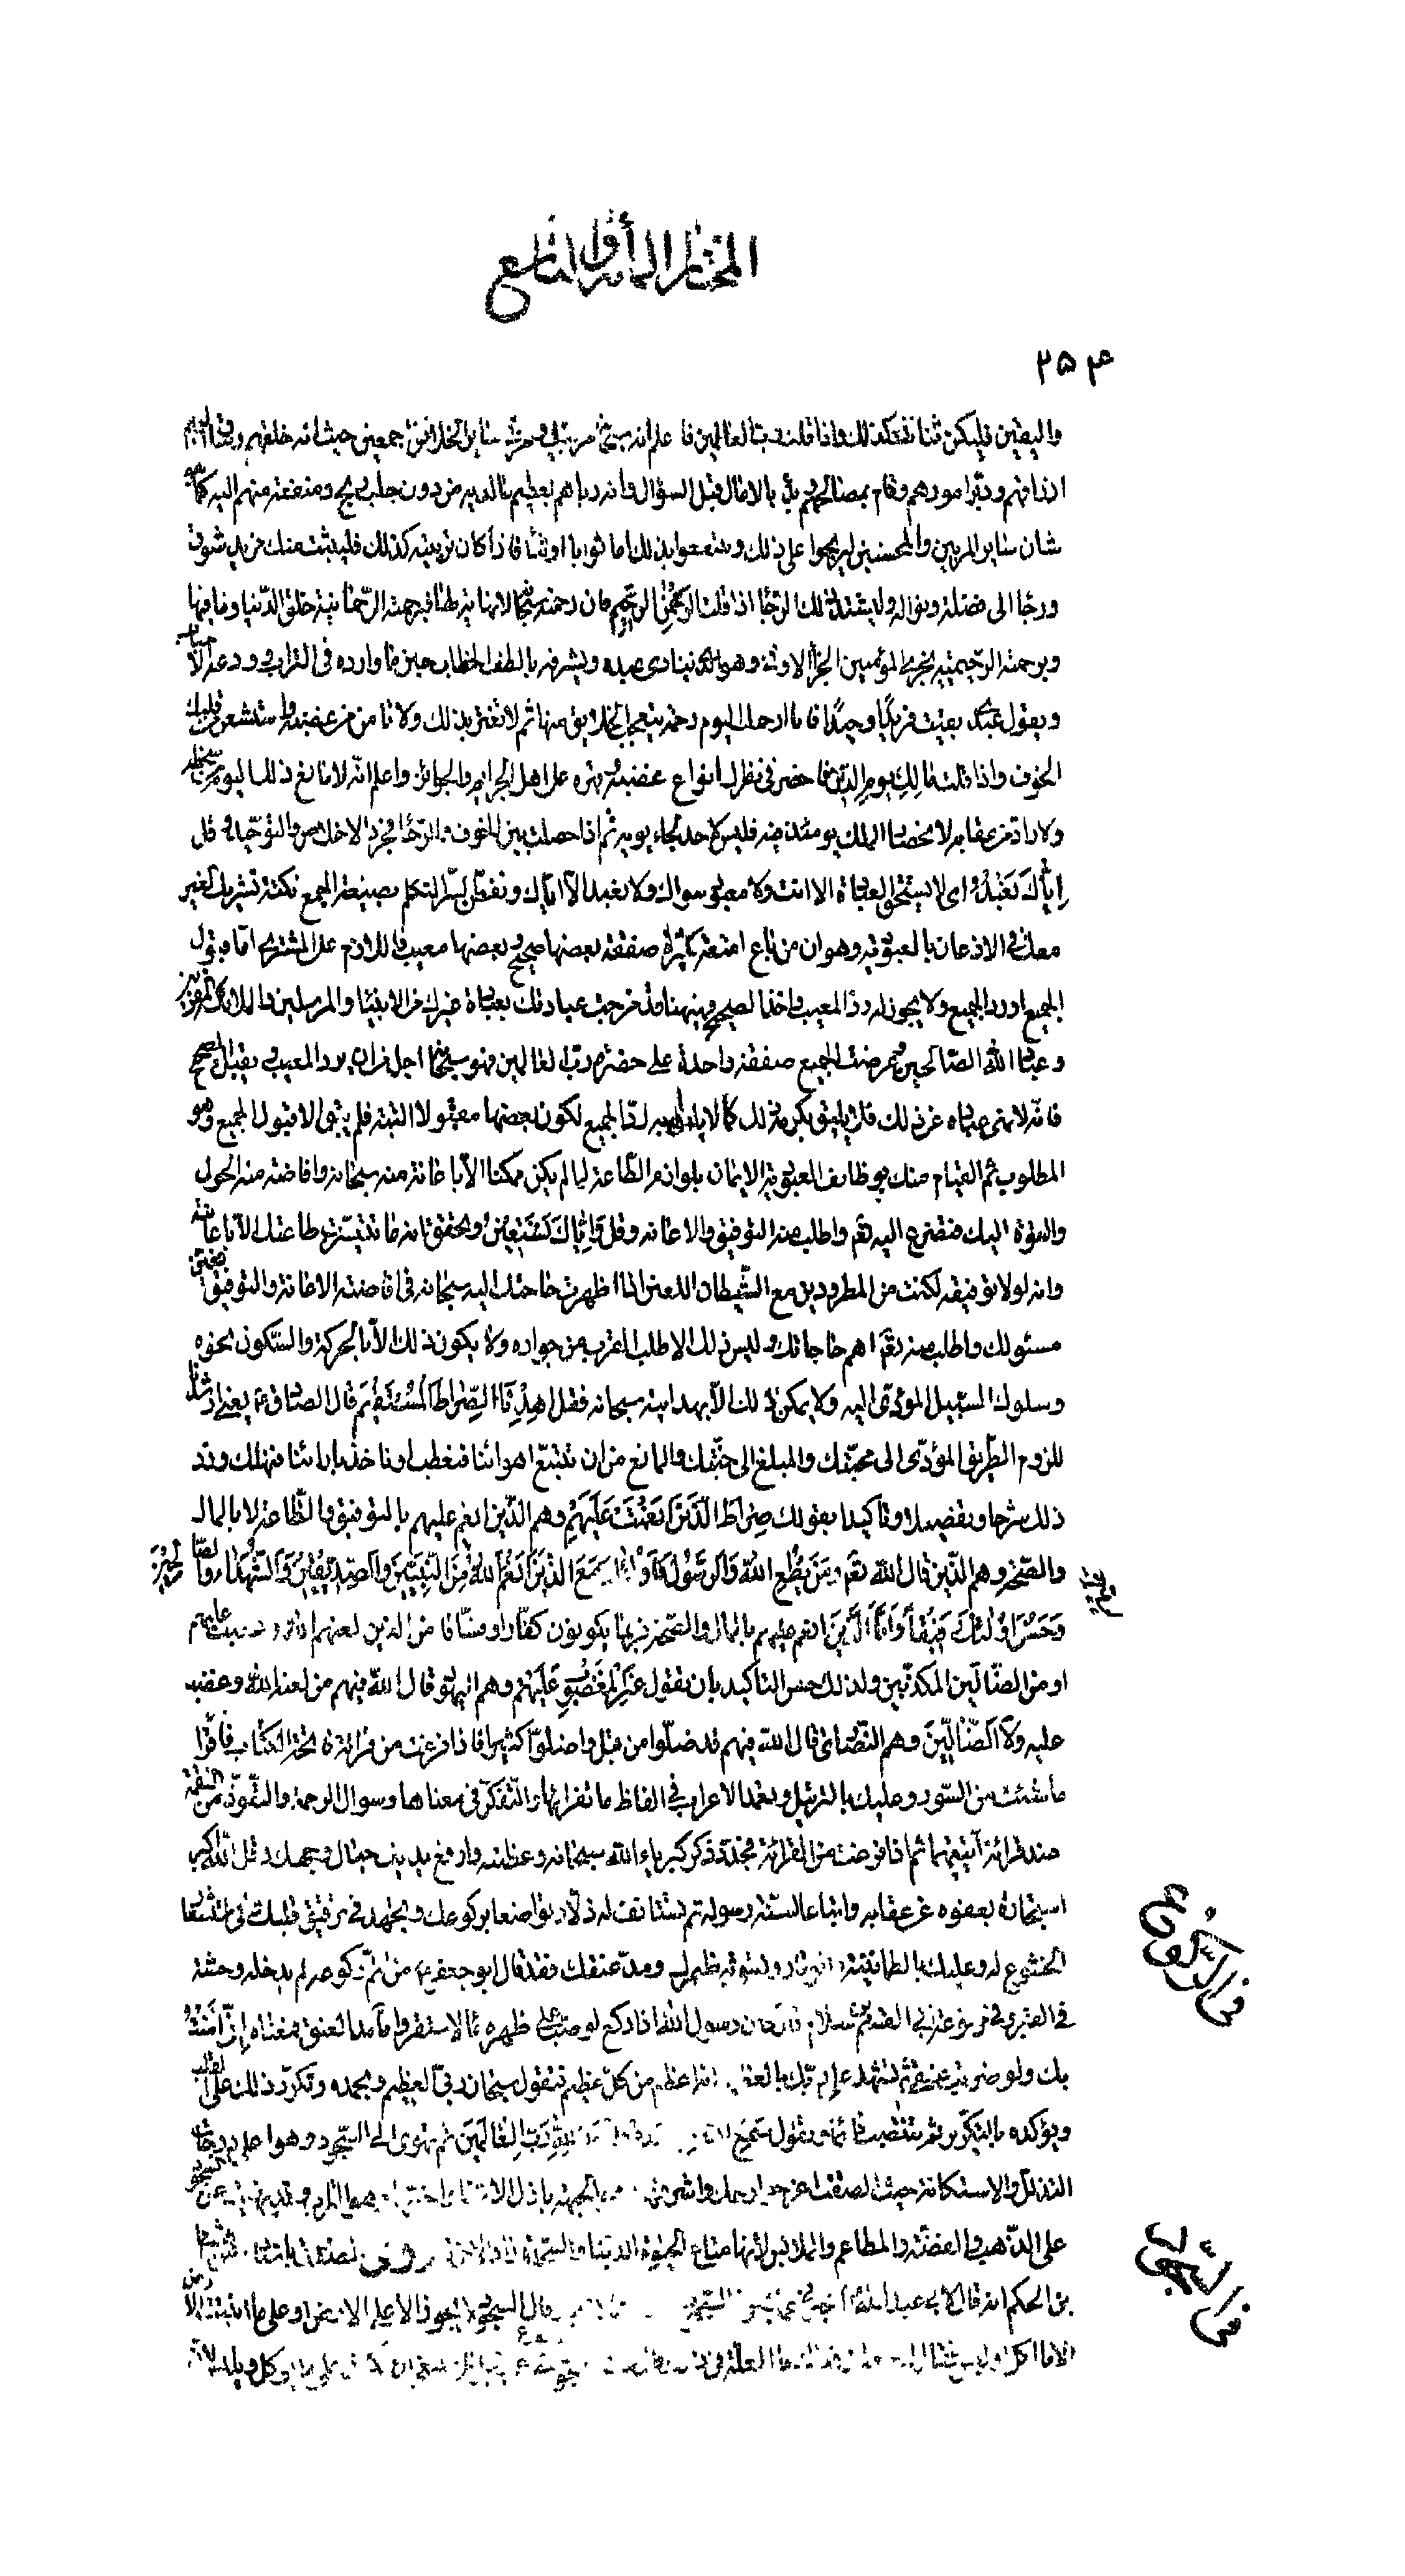 المختار المأة والتاسع
٢٥٤
واليقين فليكن ثناؤك كذلك واذا قلت رب العالمين فاعلم انه سبحانه مربيك ومربي ساير الخلائق اجمعين حيث انه خلقهم وساق اليهم
ارزاقهم ودبّر امورهم وقام بمصالحهم بالافضال قبل السؤال وانه رباهم بعظيم ما لديه من دون جلب ربح ومنفعة منهم اليه كما هو
شان ساير المربين والمحسنين ليربحوا على ذلك وينتفعوا بذلك اما ثوابا او ثناء فاذا كان تربيته كذلك فليبعث منك مزيد شوق
ورجاء الى فضله ونواله وليشتد ذلك الرجاء اذا قلت الرحمن الرحيم فان رحمته سبحانه لا نهاية لها فبرحمته الرحمانية خلق الدنيا وما فيها
وبرحمته الرحيمية يجزي المؤمنين الجزاء الاوفى وهو الذي ينادي عبده ويشرفه بالطف الخطاب حين ما واراه في التراب وودعه الاحباب
ويقول عبدي بقيت فريدا وحيدا فانا ارحمك اليوم رحمة يتعجب الخلايق منها ثم لا تغتر بذلك ولا تامن من غضبه واستشعر من قلبك
الخوف واذا قلت مالك يوم الدين فاحضر في نظرك انواع غضبه وقهره على اهل الجرائم والجرائر واعلم انه لا مانع ذلك اليوم من سخطه
ولا راد من عقابه لانحصار الملك يومئذ فيه فليس لاحد لجاء يؤويه ثم اذا حصلت بين الخوف والرجاء فجرد الاخلاص والتوحيد وقل
إِيَّاكَ نَعْبُدُ اي لا يستحق العبادة الا انت ولا معبود سواك ولا نعبد الا اياك وتفطن لسر التكلم بصيغة الجمع نكتة تشريك الغير
معك في الاذعان بالعبودية وهو ان من باع امتعة كثيرة صفقة بعضها صحيح وبعضها معيب فاللازم على المشتري اما قبول
الجميع او رد الجميع ولا يجوز له رد المعيب واخذ الصحيح فههنا قد مزجت عبادتك بعبادة غيرك من الانبياء والمرسلين والملائكة المقربين
وعباد الله الصالحين وعرضت الجميع صفقة واحدة على حضرة رب العالمين فهو سبحانه اجل من ان يرد المعيب ويقبل الصحيح
فانه لا نهى عباده عن ذلك فلا يليق بكرمه ذلك كما لا يليق به رد الجميع لكون بعضها مقبولا البتة فلم يبق الا قبول الجميع وهو
المطلوب ثم القيام منك بوظايف العبودية الاتيان بلوازم الطاعة لما لم يكن ممكنا الا باعانة منه سبحانه وافاضة منه الحول
والقوة اليك فتضرع اليه تعالى واطلب منه التوفيق والاعانة وقل وَإِيَّاكَ نَسْتَعِينُ وتحقق انه ما تيسرت طاعتك الا باعانته
وانه لولا توفيقه لكنت من المطرودين مع الشيطان اللعين اذا اظهرت حاجتك اليه سبحانه في افاضة الاعانة والتوفيق فعين
مسئولك واطلب منه تعالى اهم حاجاتك وليس ذلك الا طلب القرب من جواره ولا يكون ذلك الا بالحركة والسكون نحوه
وسلوك السبيل المؤدي اليه ولا يمكن ذلك الا بهدايته سبحانه فقل اهْدِنَا الصِّرَاطَ الْمُسْتَقِيمَ قال الصادق ع يعني ارشدنا
للزوم الطريق المؤدي الى محبتك والمبلغ الى جنتك والمانع من ان نتبع اهوائنا فنعطب او ناخذ بارائنا فنهلك وزد
ذلك شرحا وتفصيلا وتأكيدا بقولك صِرَاطَ الَّذِينَ أَنْعَمْتَ عَلَيْهِمْ وهم الذين انعم عليهم بالتوفيق والطاعة لا بالمال
والصحة وهم الذين قال الله تعالى وَمَنْ يُطِعِ اللهَ وَالرَّسُولَ فَأُولَئِكَ مَعَ الَّذِينَ أَنْعَمَ اللهُ عليهم مِنَ النَّبِيِّينَ وَالصِّدِّيقِينَ وَالشُّهَدَاءِ والصالحين
وَحَسُنَ أُولَئِكَ رَفِيقًا واما الذين انعم عليهم بالمال والصحة فربما يكونون كفارا او فساقا من الذين لعنهم الله وغضب عليهم
او من الضالين المكذبين ولذلك حسن التاكيد بان نقول غَيْرِ الْمَغْضُوبِ عَلَيْهِمْ وهم اليهود قال الله فيهم من لعنه الله وغضب
عليه وَلَا الضَّالِّينَ وهم النصارى قال الله فيهم قد ضلوا من قبل واضلوا كثيرا فاذا فرغت من قرائة فاتحة الكتاب فاقرأ
ما شئت من السور وعليك بالترتيل وتعمد الاعراب في الفاظ ما تقرأ بها والتفكر في معناها وسؤال الرحمة والتعوذ من النقمة
عند قرائة آيتيهما ثم اذا فرغت من القرائة فجدد ذكر كبرياء الله سبحانه وعظمته وارفع يديك حيال وجهك وقل الله اكبر
استجارة بعفوه من عقابه واتباعا لسنة رسوله ثم تستانف له ذلا وتواضعا بركوعك وتجتهد في ترقيق قلبك وفي استشعار
الخشوع له وعليك بالطمانينة والوقار وتسوية ظهرك ومد عنقك فقد قال ابو جعفر ع من اتم ركوعه لم يدخله وحشة
في القبر وفي مرفوعة في الفقيه رسول الله اذا ركع لو صب على ظهره ماء لاستقر واما مد العنق فمعناه إنّي آمَنْتُ
بك ولو ضربت عنقي ثم تشهد على ربك بالعظمة وانه اعظم من كل عظيم فتقول سبحان ربي العظيم وبحمده وتكرر ذلك على القلب
وتؤكده بالتكرير ثم تنتصب قائما وتقول سمع الله رَبِّ الْعَالَمِينَ ثم تهوى الى السجود وهو اعلى درجات
التذلل والاستكانة حيث الصقت اعز جوارحك واشرفها
على الذهب والفضة والمطاعم والملابس لانها متاع الحيوة الدنيا
بن الحكم انه قال لابي عبد الله ع اخبرني قال السجود لا يجوز الا على الارض او على ما انبتت الارض
الا ما اكل او لبس
في الركوع
في السجود